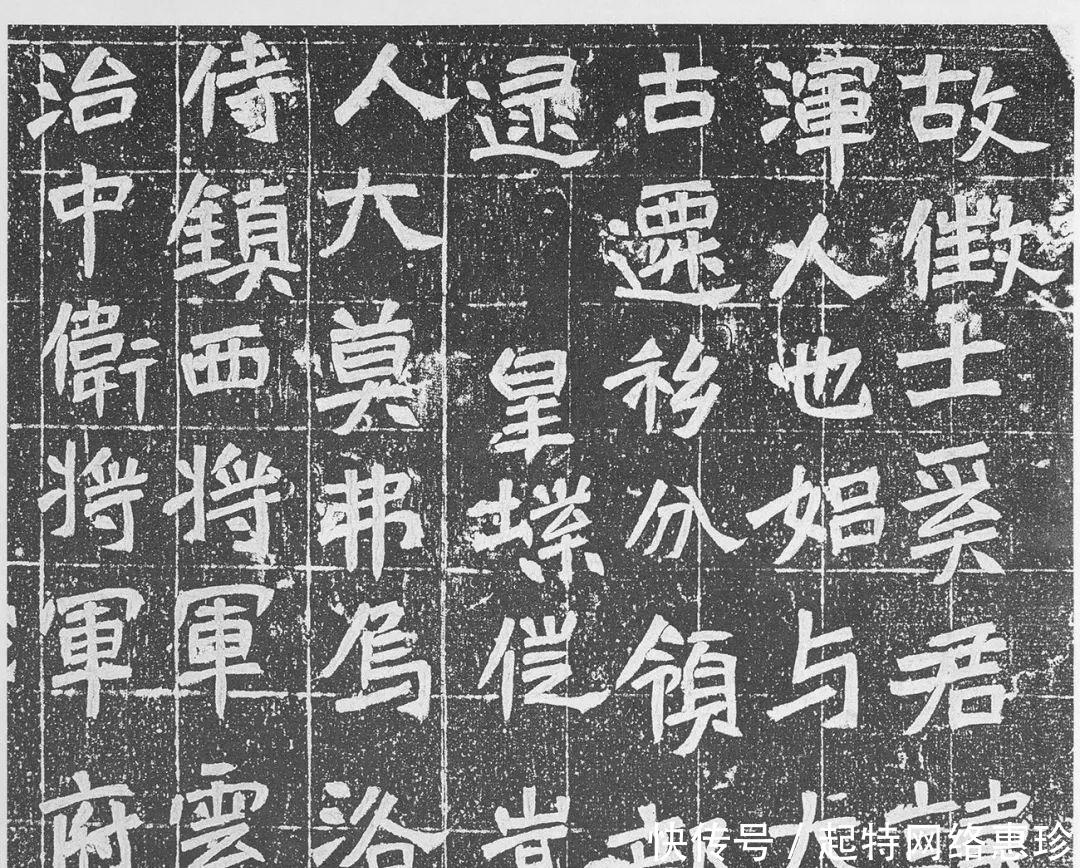 故徵士奚君諱
渾人也始与大
古遷移分領部
逮皇
人大莫弗烏洛
侍鎮西將軍雲
治中衛將軍府
快传号 / 起特网络惠珍